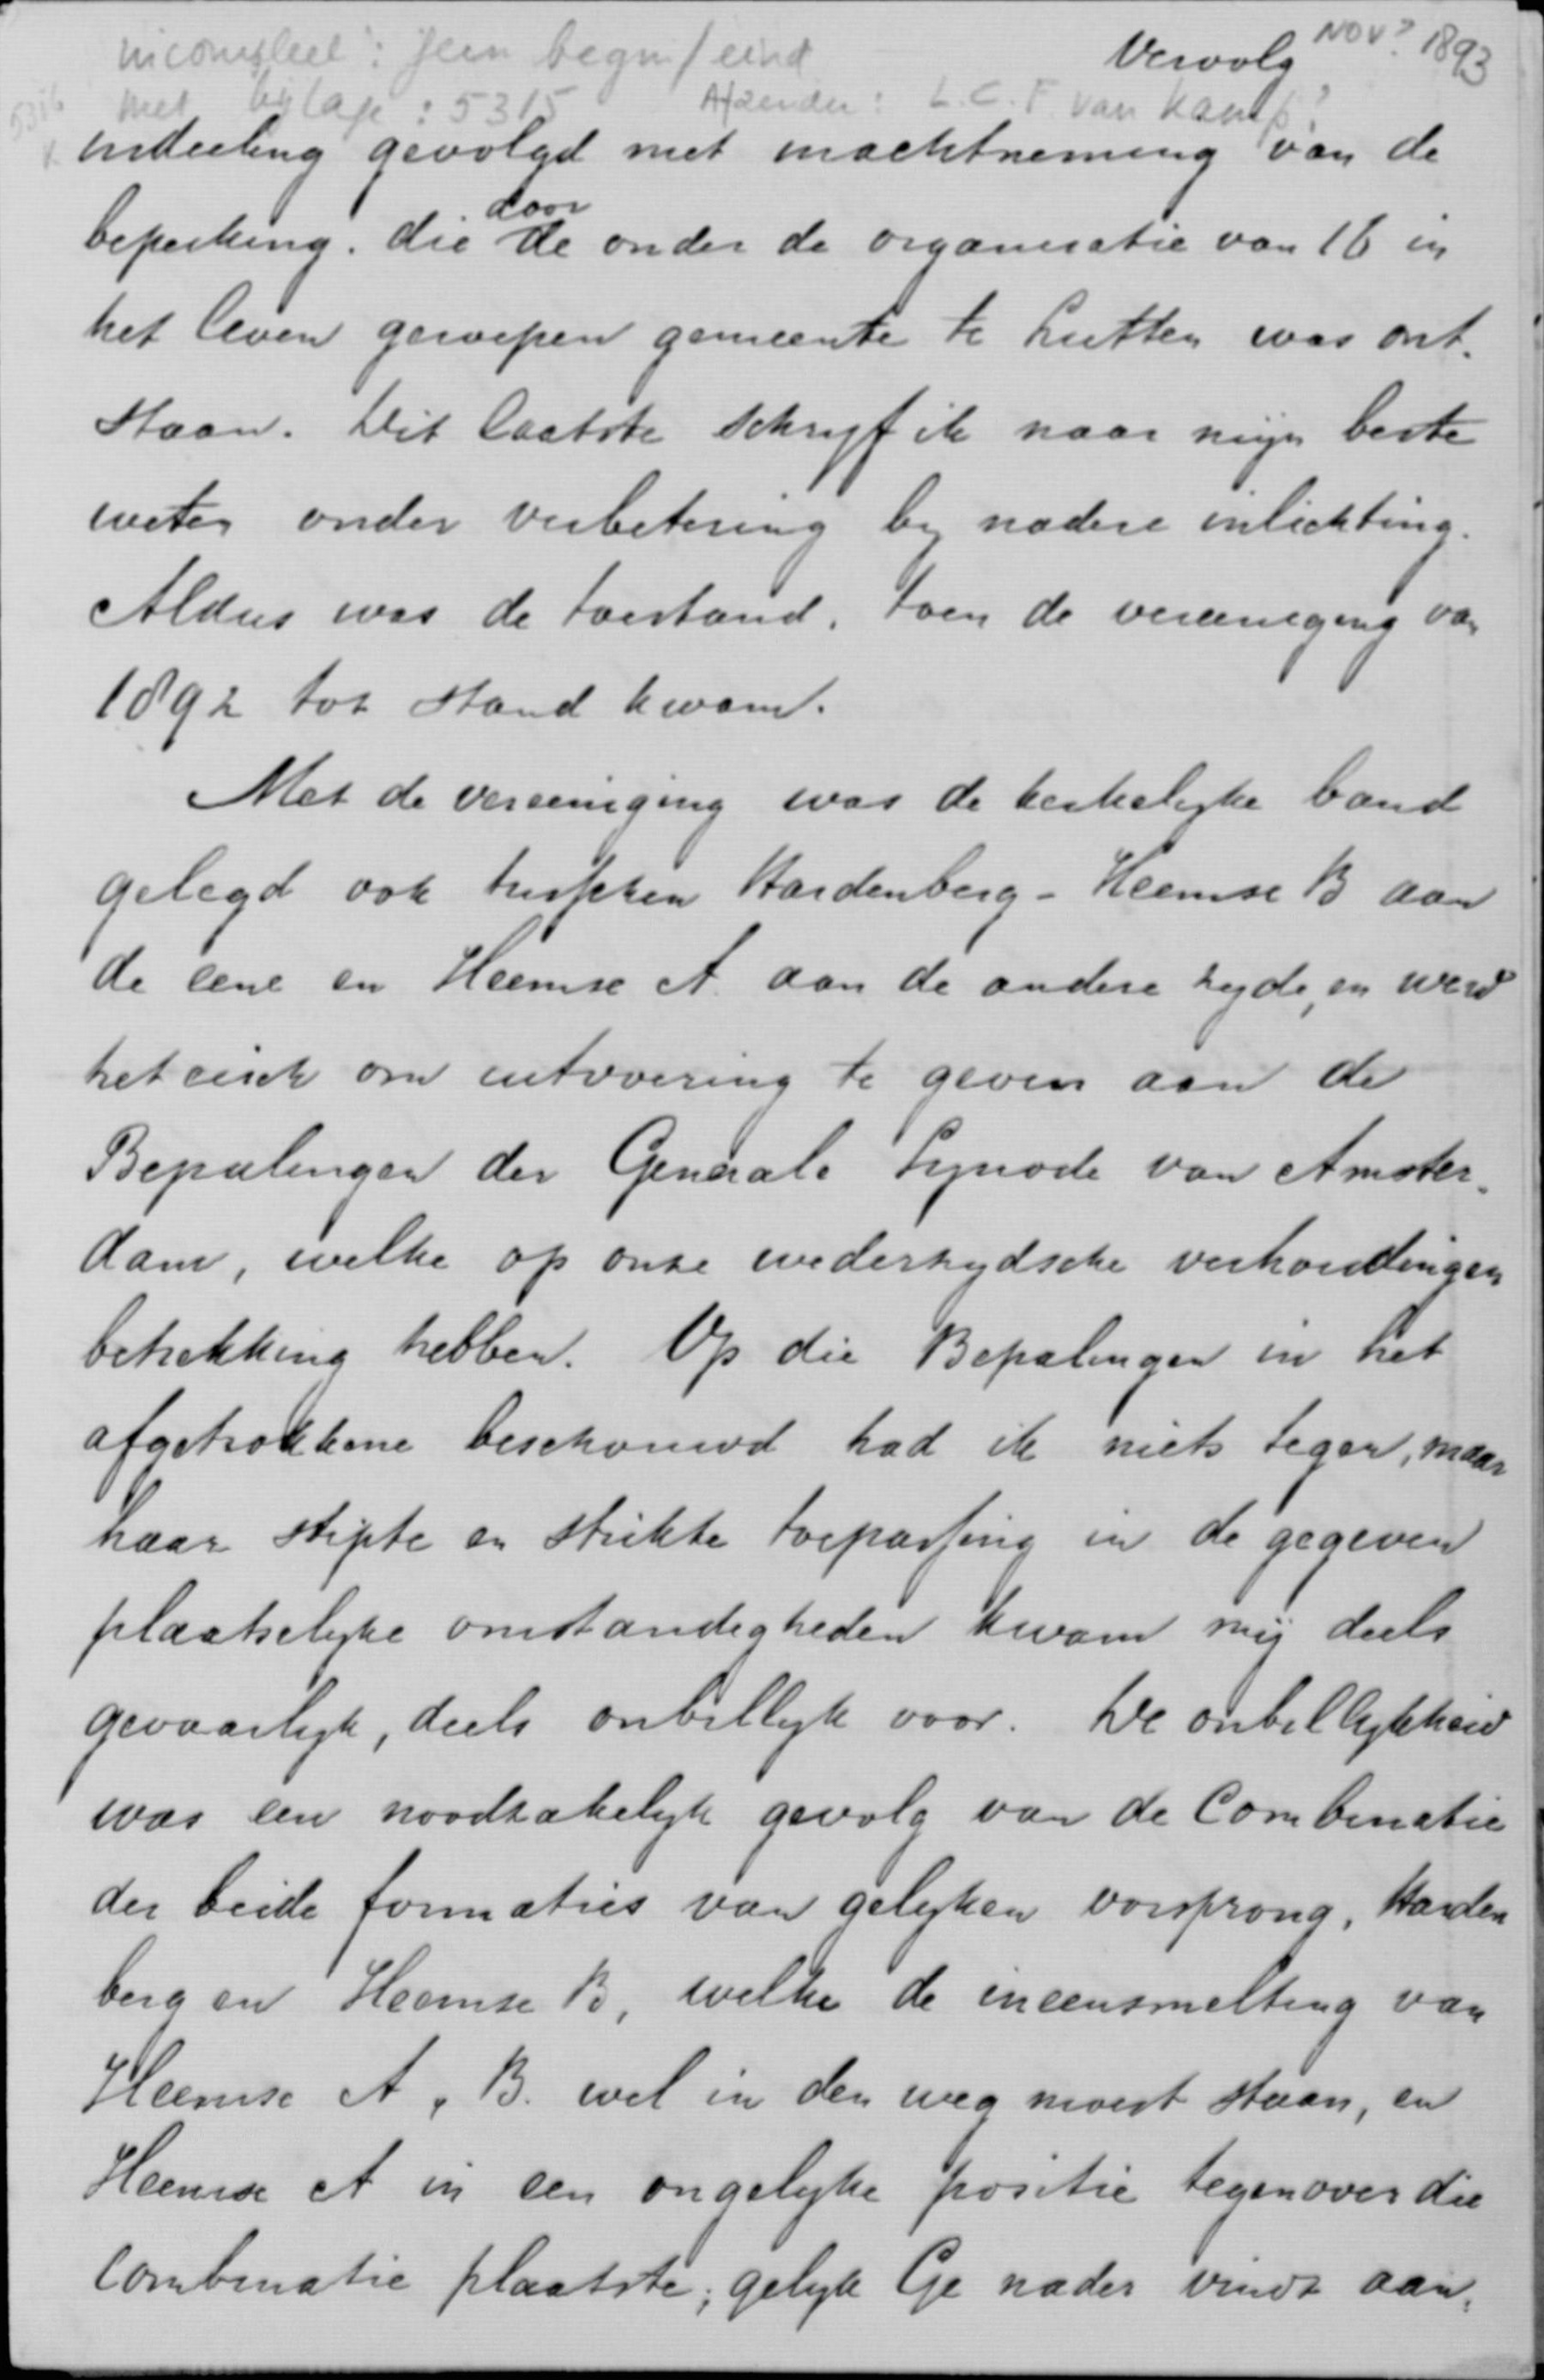 incompleet: geen begin/eind
Vervolg Nov? 1893
met bijlage: 5315 Afzender: L.C.F. van Kamp?
indeeling gevolgd met inachtneming van de
beperking. die door de onder de organisatie van 16 in
het leven geroepen gemeente te Lutten was ont-
staan. Dit laatste schryf ik naar mijn beste
weten onder verbetering by nadere inlichting.
Aldus was de toestand, toen de vereeniging van
1892 tot stand kwam.
Met de vereeniging was de kerkelyke band
gelegd ook tusschen Hardenberg - Heemse B aan
de eene en Heemse A aan de andere zyde, en werd
het eisch om uitvoering te geven aan de
Bepalingen der Generale Synode van Amster-
dam, welke op onze wederzydsche verhoudingen
betrekking hebben. Op die Bepalingen in het
afgetrokkene beschouwd had ik niets tegen, maar
haar stipte en strikte toepassing in de gegeven
plaatselyke omstandigheden kwam mij deels
gevaarlyk, deels onbillyk voor. De onbillykheid
was een noodzakelyk gevolg van de Combinatie
der beide formaties van gelyken oorsprong, Harden
berg en Heemse B, welke de ineensmelting van
Heemse A, B. wel in den weg moest staan, en
Heemse A in een ongelyke positie tegenover die
Combinatie plaatste; gelyk Ge nader vindt aan-